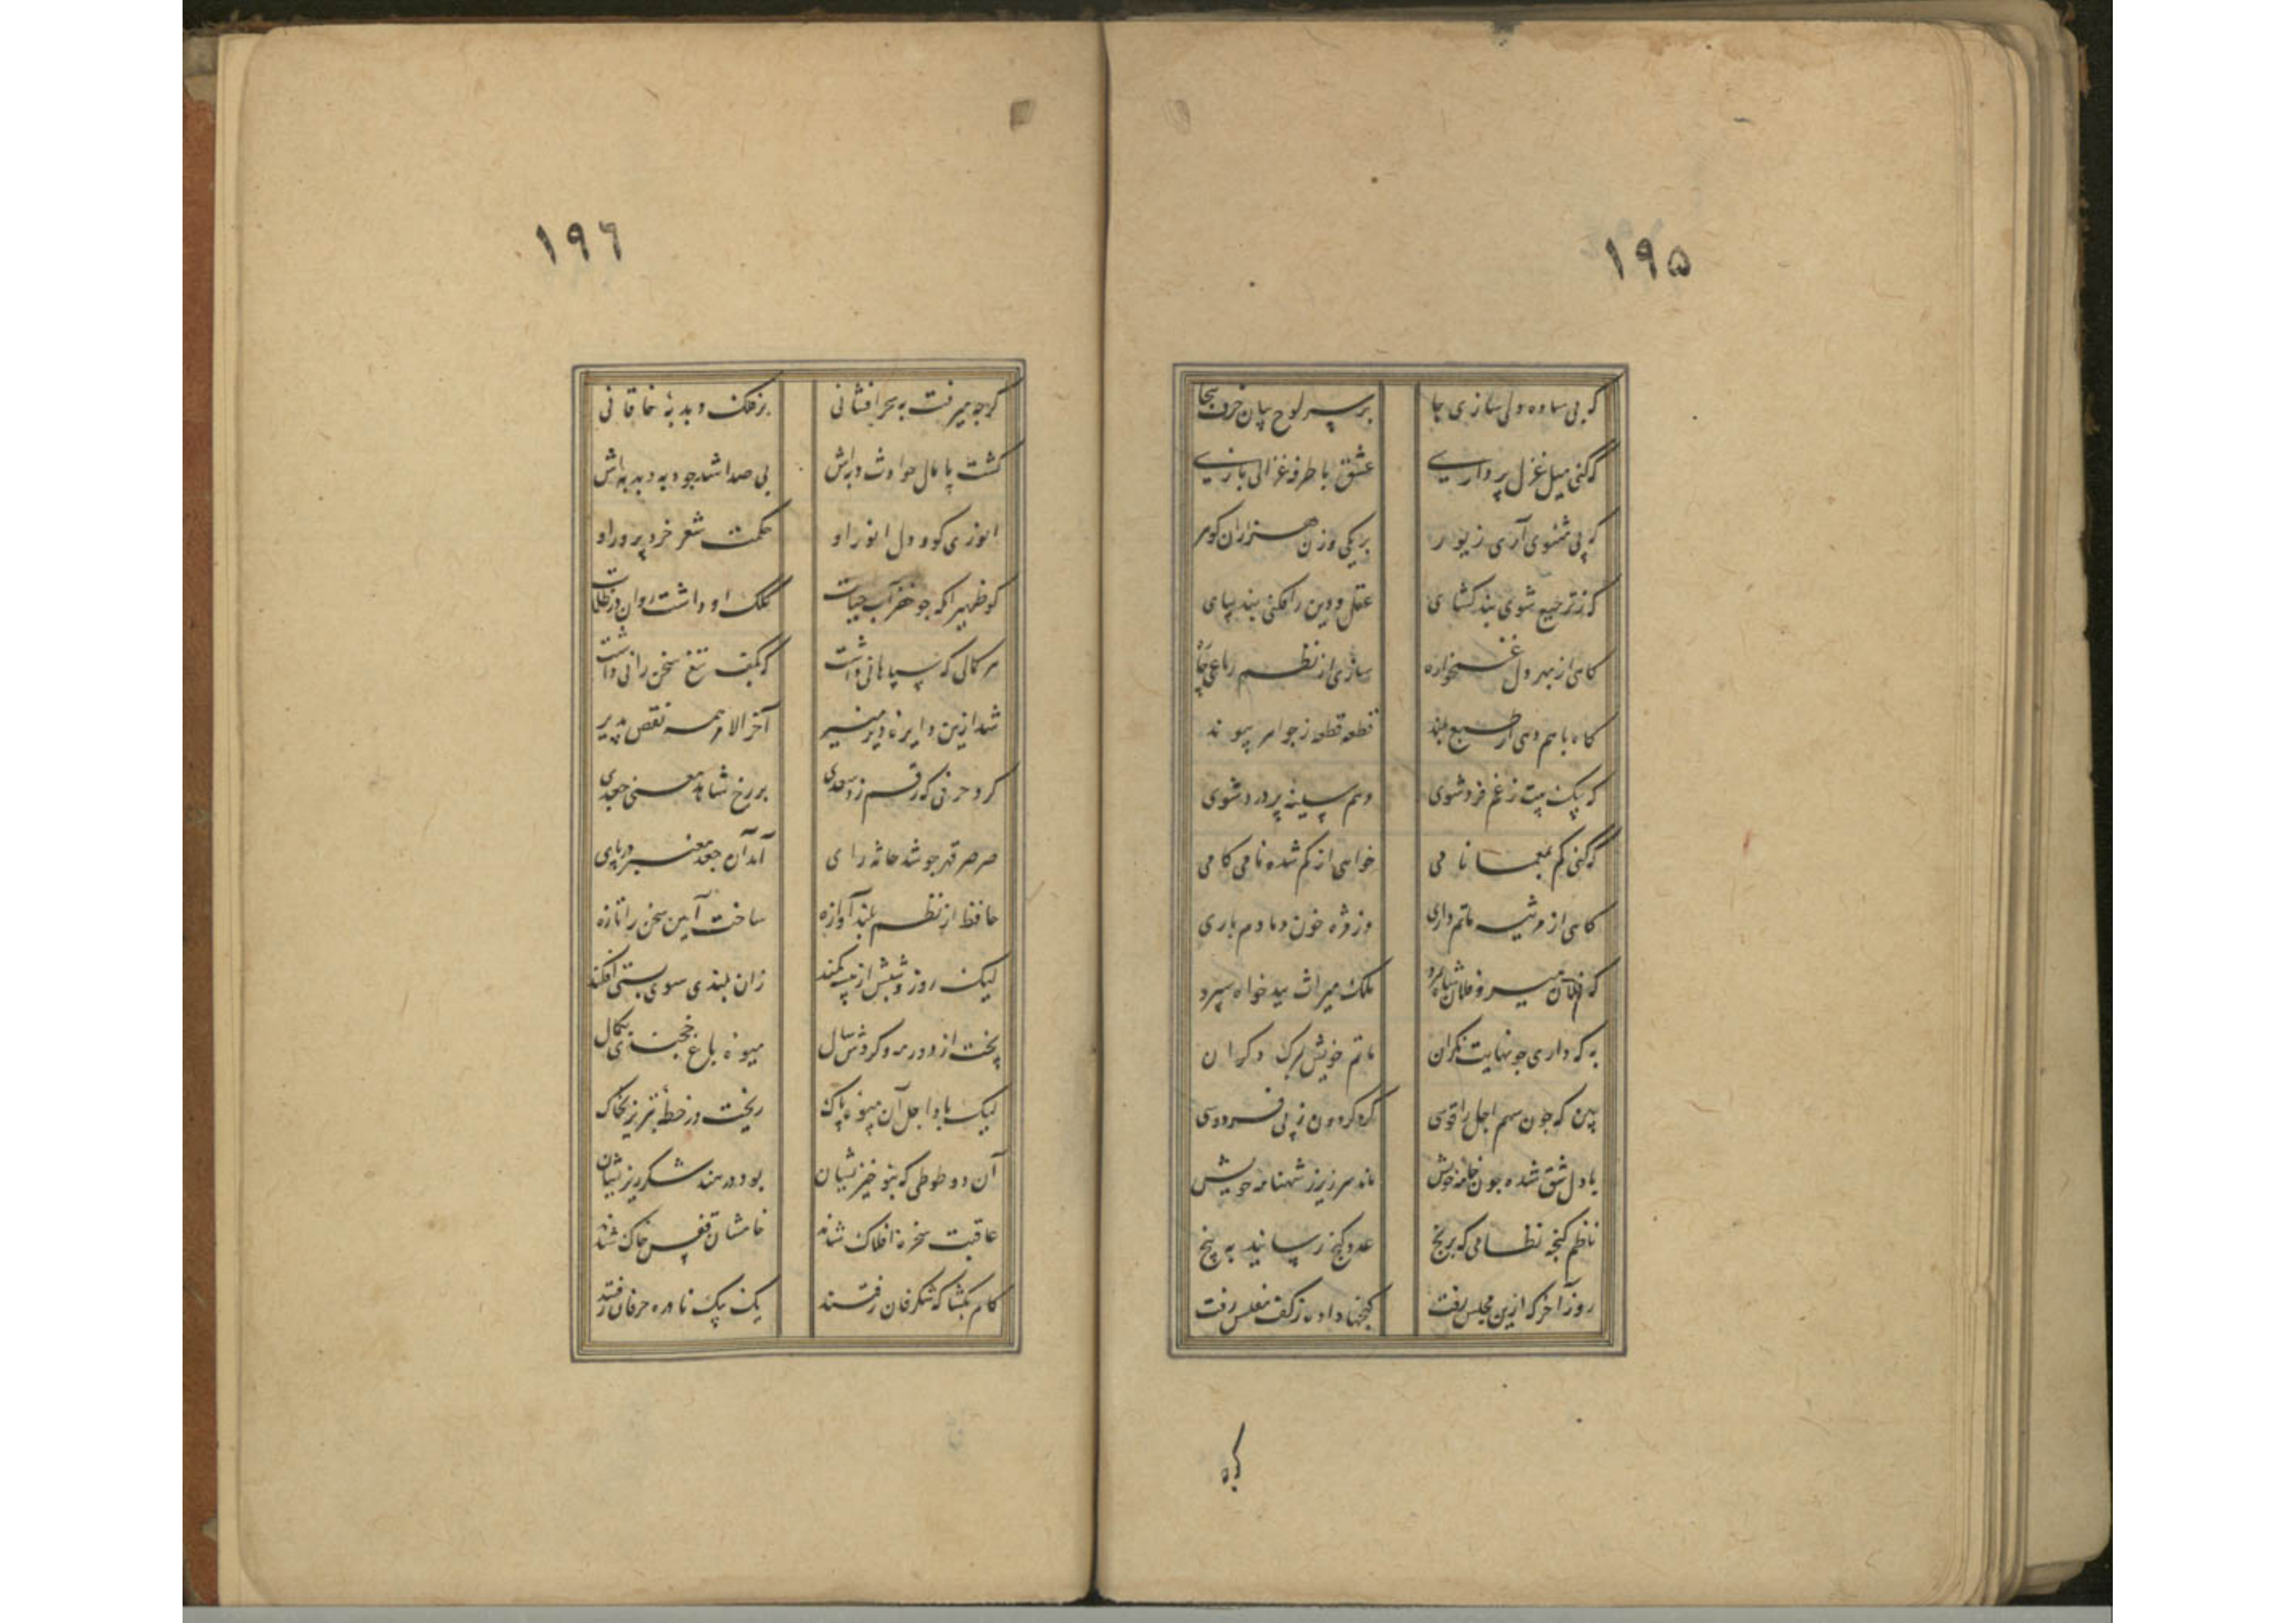 ۱۹۵
که پی ساده دلی سازی جا بر سر لوح بیان حرف هجا
گه کنی میل غزل پردازی عشق با طرفه غزالی بازی
که پی مثنوی آری زیور بر یکی وزن هزاران گوهر
که ز ترجیع شوی بند کشای عقل و دین را فکنی بند بپای
کاهی از بهر دل غمخواره سازی از نظم رباعی چاره
کاه با هم دهی از طبع بلند قطعه قطعه ز جواهر پیوند
که بیک بیت ز غم فرد شوی وهم سینه پر درد شوی
گه کنی کم بمعما نامی خواهی از کم شده نامی کامی
کاهی از مرثیه ماتم داری وز مژه خون دمادم باری
که فلان میر و فلان شاه بمرد ملک میراث ببدخواه سپرد
به که داری چو نهایت نکران ماتم خویش بمرک دکران
ببین که جون سهم اجل را قوسی کرد کردون ز پی فردوسی
با دل شق شده جون خامه خویش ماند سر زیر ز شهنامه خویش
ناظم کنجه نظامی که برنج عدد کنج رسانید به پنج
روز آخر که ازین مجلس رفت کنجها داده ز کف مفلس رفت
کرچه
۱۹۶
کرچه میرفت به سحر افشانی بر فلک دبدبهٔ خاقانی
کشت پامال حوادث دبه‌اش بی صدا شد جو دبه دبدبه‌اش
انوری کو و دل انور او حکمت شعر خرد پرور او
کو ظهیر آنکه جو خضر آب حیات کلک او داشت روان در ظلمات
هر کمالی که سپاهانی داشت که بکف تیغ سخن رانی داشت
شد ازین دایرهٔ دیر مسیر آخر الامر همه نقص پذیر
کرد حرفی که رقم زد سعدی بر رخ شاهد معنی جعدی
صرصر قهر جو شد حادثه زای آمد آن جعد معنبر در پای
حافظ از نظم بلند آوازه ساخت آیین سخن را تازه
لیک روز و شبش از پیسه کمند زان بلندی سوی پستی افکند
پخت از دور مه و کردش سال میوهٔ باغ خجندی بکمال
لیک باد اجل آن میوهٔ پاک ریخت در خطهٔ تبریز بخاک
آن دو طوطی که بنوخیزیشان بود در هند شکرریزیشان
عاقبت سخرهٔ افلاک شدند خامشان قفس خاک شدند
کام بکشا که شکرفان رفتند یک بیک نادره حرفان رفتند